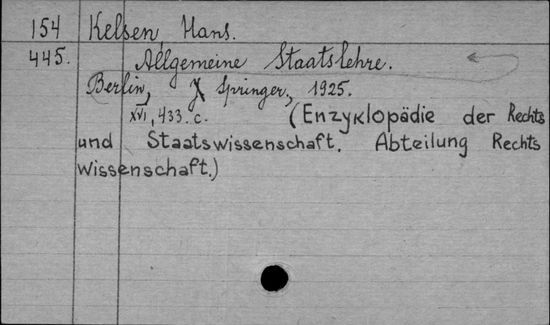 154 Kelsen, Hans.
445. Allgemeine Staatslehre.
Berlin, J Springer, 1925.
XVI, 433 c. (Enzyklopädie der Rechts
und Staatswissenschaft. Abteilung Rechts
wissenschaft.)